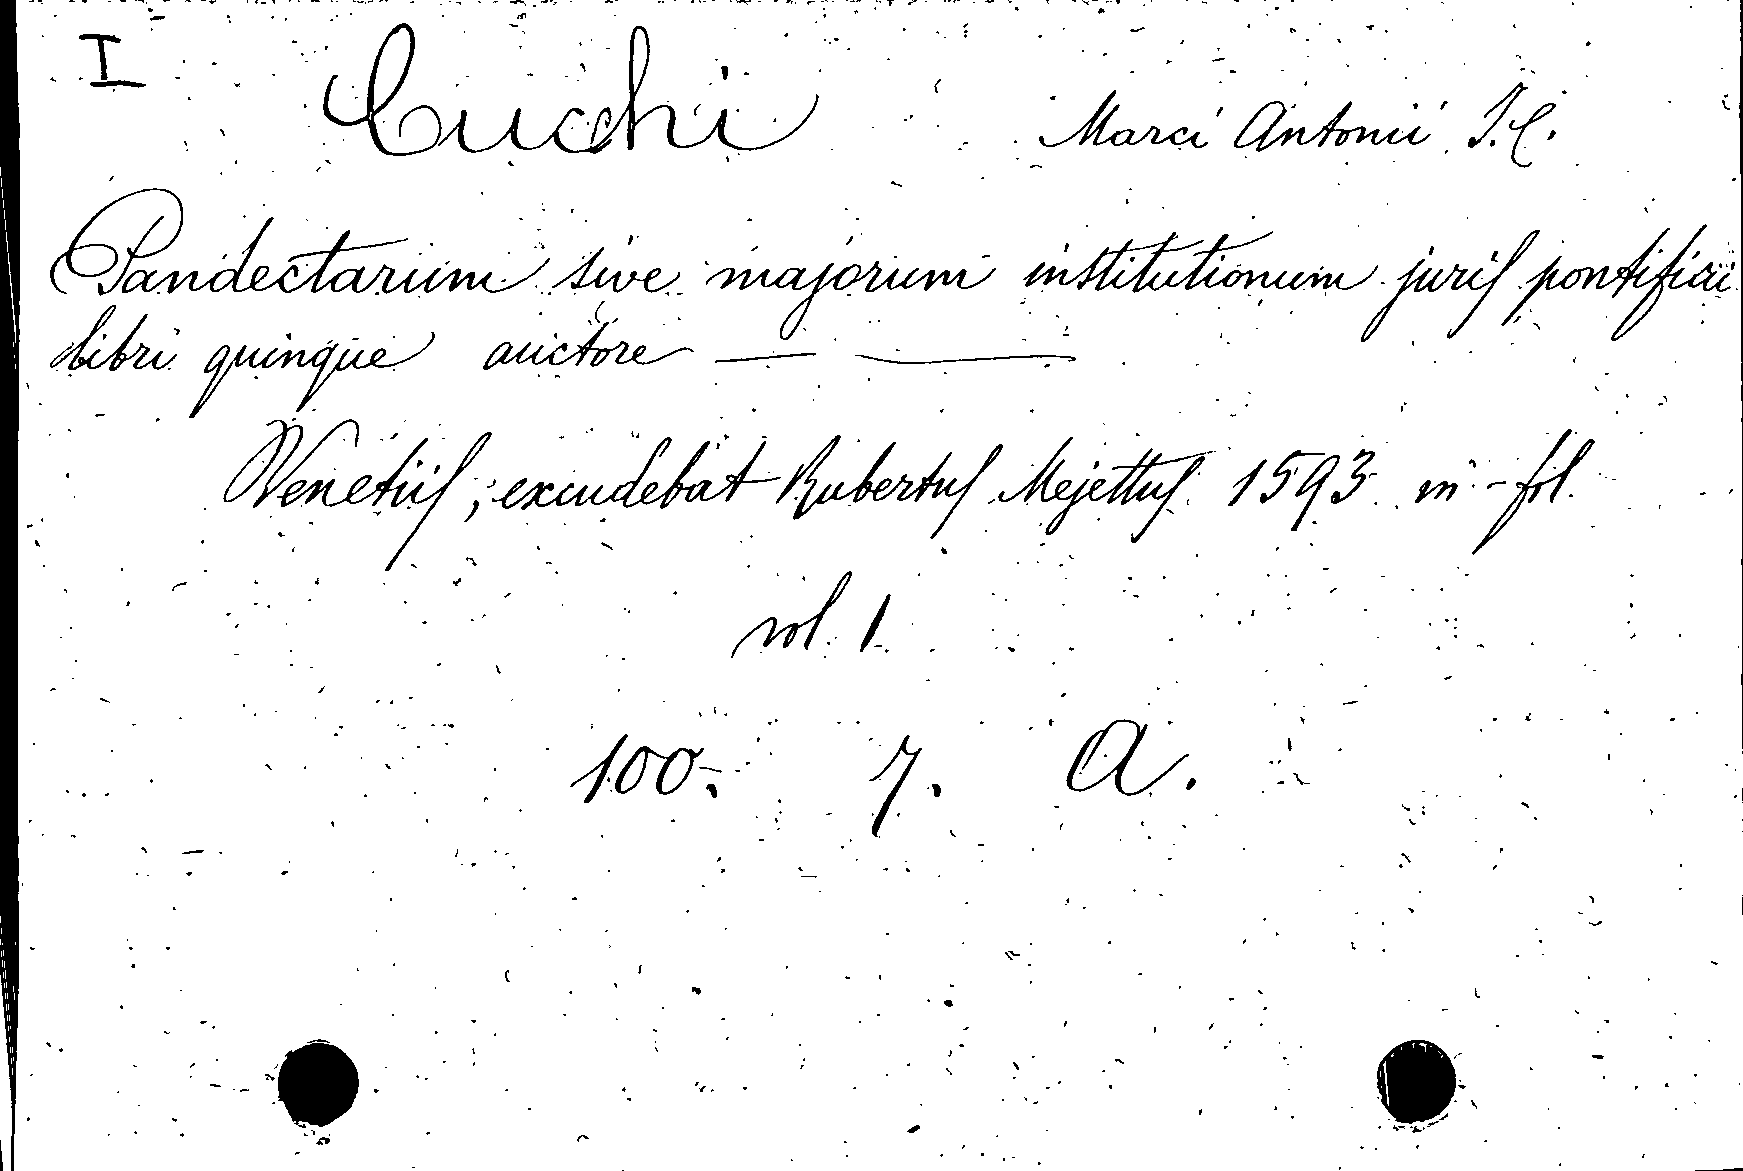 I
Cucchi Marci Antonii J.C.
Pandectarum sive majorum institutionum juris pontificii
libri quinque auctore — —
Venetiis, excudebat Rubertus Mejettus 1593 in-fol.
vol. 1
100. 7. A.